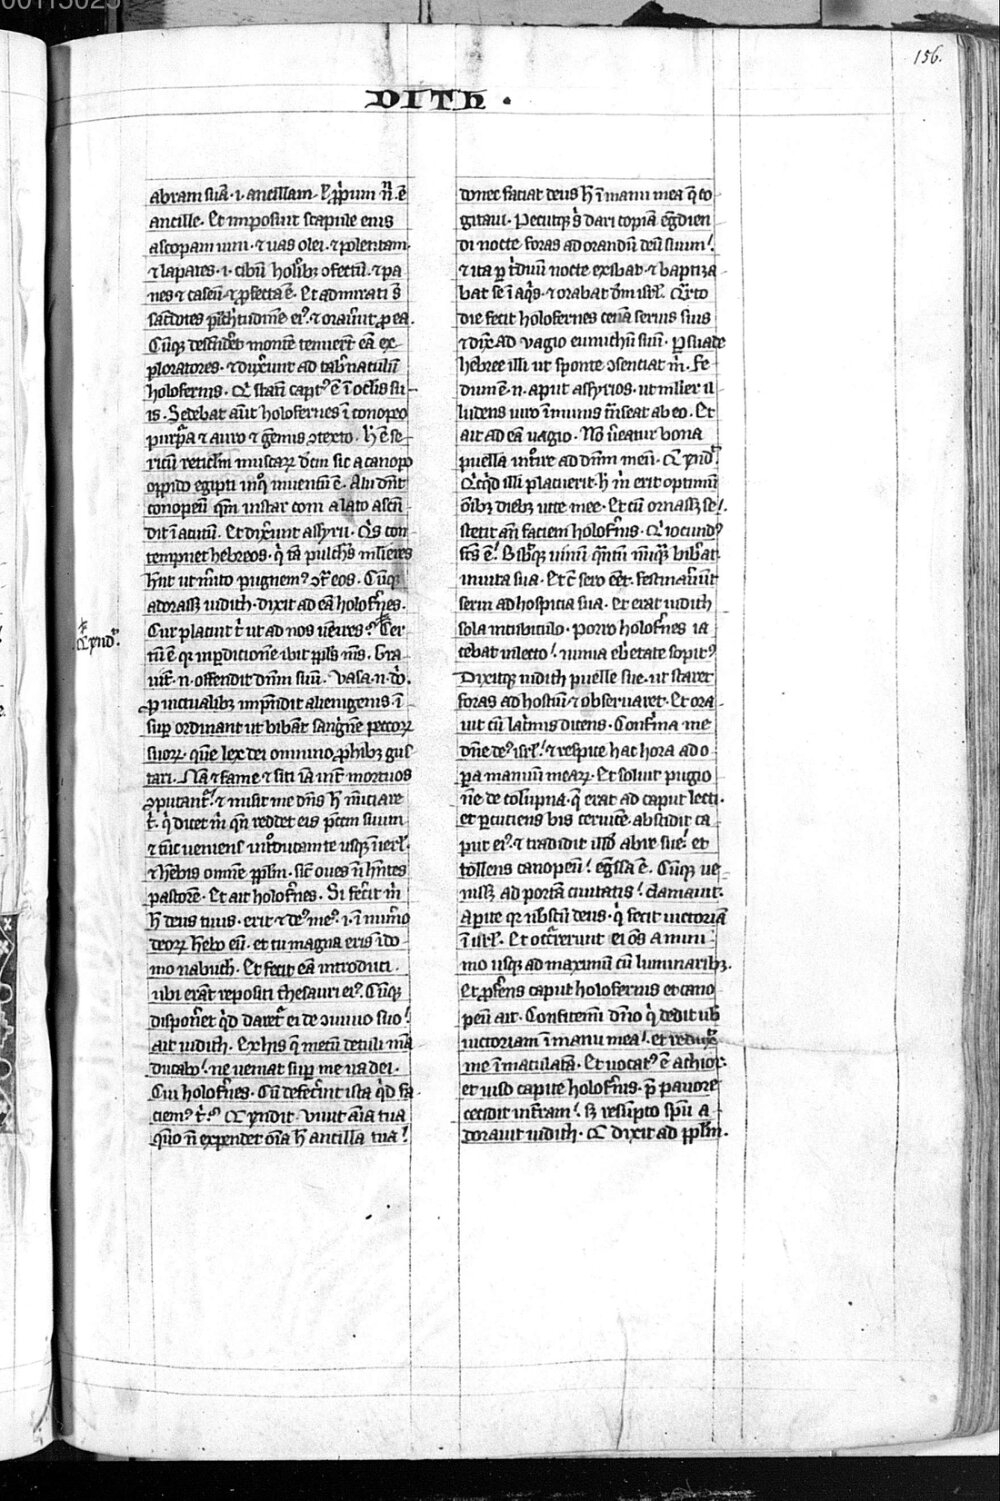 156.
DITH .
abram suā .i. ancillam. ł ꝓprium n̄. ē
ancille. Et imposuit scapule eius
ascopam uini. ⁊ uas olei. ⁊ polentam.
⁊ lapates .i. cibū holi͛bꝫ ɔfectū. ⁊ pa
nes ⁊ caseū. ⁊ ꝓfecta ē. Et admirati s̄
sac͛dotes pulc͛tudinē eiꝰ. ⁊ orauer̄t ꝓ ea.
Cūqꝫ descēder͛t montē tenuer̄t eā ex
ploratores. ⁊ duxerunt ad tab͛naculū
holofernis. Qͥ statī captꝰ ē ī oclis su
is. Sedebat aūt holofernes ī conopeo
purpͣa ⁊ auro ⁊ gemis ɔtexto. h̄ ē se
ricū reticl̄m muscaꝝ dc̄m sic a canopo
oppido egipti inqͦ inuentū ē. Alii dn̄t
conopeū qm̄ instar coni a lato ascen
dit ī acutū. Et dixerunt assyrii. Qͥs con
tempnet hebreos. qͥ tā pulchͣs mulieres
hn̄t ut m̄ito pugnemꝰ ɔtͣ eos. Cūqꝫ
adorasꝫ iudith. dixit ad eā holof͛nes.
Cur placuit t̄ ut ad nos uēires? Cer
tū ē qꝛ inperditionē ibit ppl̄s nr̄s. Gra
uit͛. n. offendit dn̄m suū. Vasa. n. dō.
ꝓ uictualibꝫ impendit alienigenis. ī
suꝑ ordinant ut bibāt sangͥnē pecoꝝ
suoꝝ. que lex dei omnino ꝓhibꝫ gus
tari. Nā ⁊ fame ⁊ siti iā int͛ mortuos
ɔputant͛. ⁊ misit me dn̄s h̄ nūciare
t̄. qͥ dicet m̄ qn̄ reddet eis pctm̄ suum
⁊ tūc ueniens int͛ducam te usqꝫ ī ierl̄.
⁊ hēbis omnē ppl̄m. sic͛ oues n̄ hn̄tes
pastorē. Et ait holof͛nes. Si fec͛it m̄
h̄ deus tuus. erit ⁊ deꝰ meꝰ .i. ī num͛o
deoꝝ hēbo eū. et tu magna eris ī do
mo nabuch. Et fecit eā introduci.
ubi erāt repositi thesauri eiꝰ. Cūqꝫ
dispoñet qͥd daret͛ ei de ɔuiuio suo.
ait iudith. Ex his q̄ mecū detuli mā
ducabo. ne ueniat suꝑ me ira dei.
Cui holof͛nes. Cū defec͛int ista qͥd fa
ciemꝰ t̄? Et iudit. Viuit aīa tua
qm̄ n̄ expendet oīa h̄ ancilla tua.
✝ R̄ iud͛.
donec faciat deus h̄ ī manu mea q̄ co
gitaui. Petiitqꝫ s̄ dari copiā eg͛dien
di nocte foras ad orandū deū suum.
⁊ ita ꝑ t͛duū nocte exibat. ⁊ baptiza
bat se ī aqͥs. ⁊ orabat dm̄ isrl̄. Qͣrto
die fecit holofernes cenā seruis suis
⁊ dix̄ ad vagio eunuchū suū. Persuade
hebree illi ut sponte ɔsentiat m̄. Fe
dum ē. n. aput assyrios. ut mulier il
ludens uiro īmunis t͛nseat ab eo. Et
ait ad eā uagio. Nō u͛eatur bona
puella int͛re ad dn̄m meū. Et iud͛.
Qͥcqͥd illi placuerit. h̄ m̄ erit optimū
ōibꝫ diebꝫ uite mee. Et cū ornassꝫ se.
stetit an̄ faciem holof͛nis. Qͥ iocundꝰ
fcs̄ ē. Bibitqꝫ uinū qn̄tū nūqͣ bib͛at
in uita sua. Et c̄ sero eēt. festinauer̄t
serui ad hospicia sua. Et erat iudith
sola in cubiculo. Porro holof͛nes ia
cebat in lecto. nimia ebͥetate sopitꝰ.
Dixitqꝫ iudith puelle sue ut staret
foras ad hostiū ⁊ obseruaret. Et ora
uit cū lac͛mis dicens. Confirma me
dn̄e deꝰ isrl̄. ⁊ respice hac hora ad o
pera manuū meaꝝ. Et soluit pugio
nē de colūpna. q̄ erat ad caput lecti.
et percutiens bis ceruicē. abscidit ca
put eiꝰ. ⁊ tradidit illd̄ abre sue. et
tollens canopeū. eg͛ssa ē. Cūqꝫ ue
nisꝫ ad portā ciuitatis. clamauit.
Aperite qꝛ nobiscū deus. qͥ fecit uictoriā
ī isrl̄. Et occͣrerunt ei oēs a mini
mo usqꝫ ad maximū cū luminaribꝫ.
Et ꝓferens caput holofernis et cano
peū ait. Confitemī dn̄o qͥ dedit uob̄
uictoriam ī manu mea. et reduxit
me īmaculatā. Et uocatꝰ ē achior.
et uiso capite holof͛nis. p̄ pauore
cecidit in t͛ram. sꝫ resūpto spū a
dorauit iudith. Et dixit ad ppl̄m.